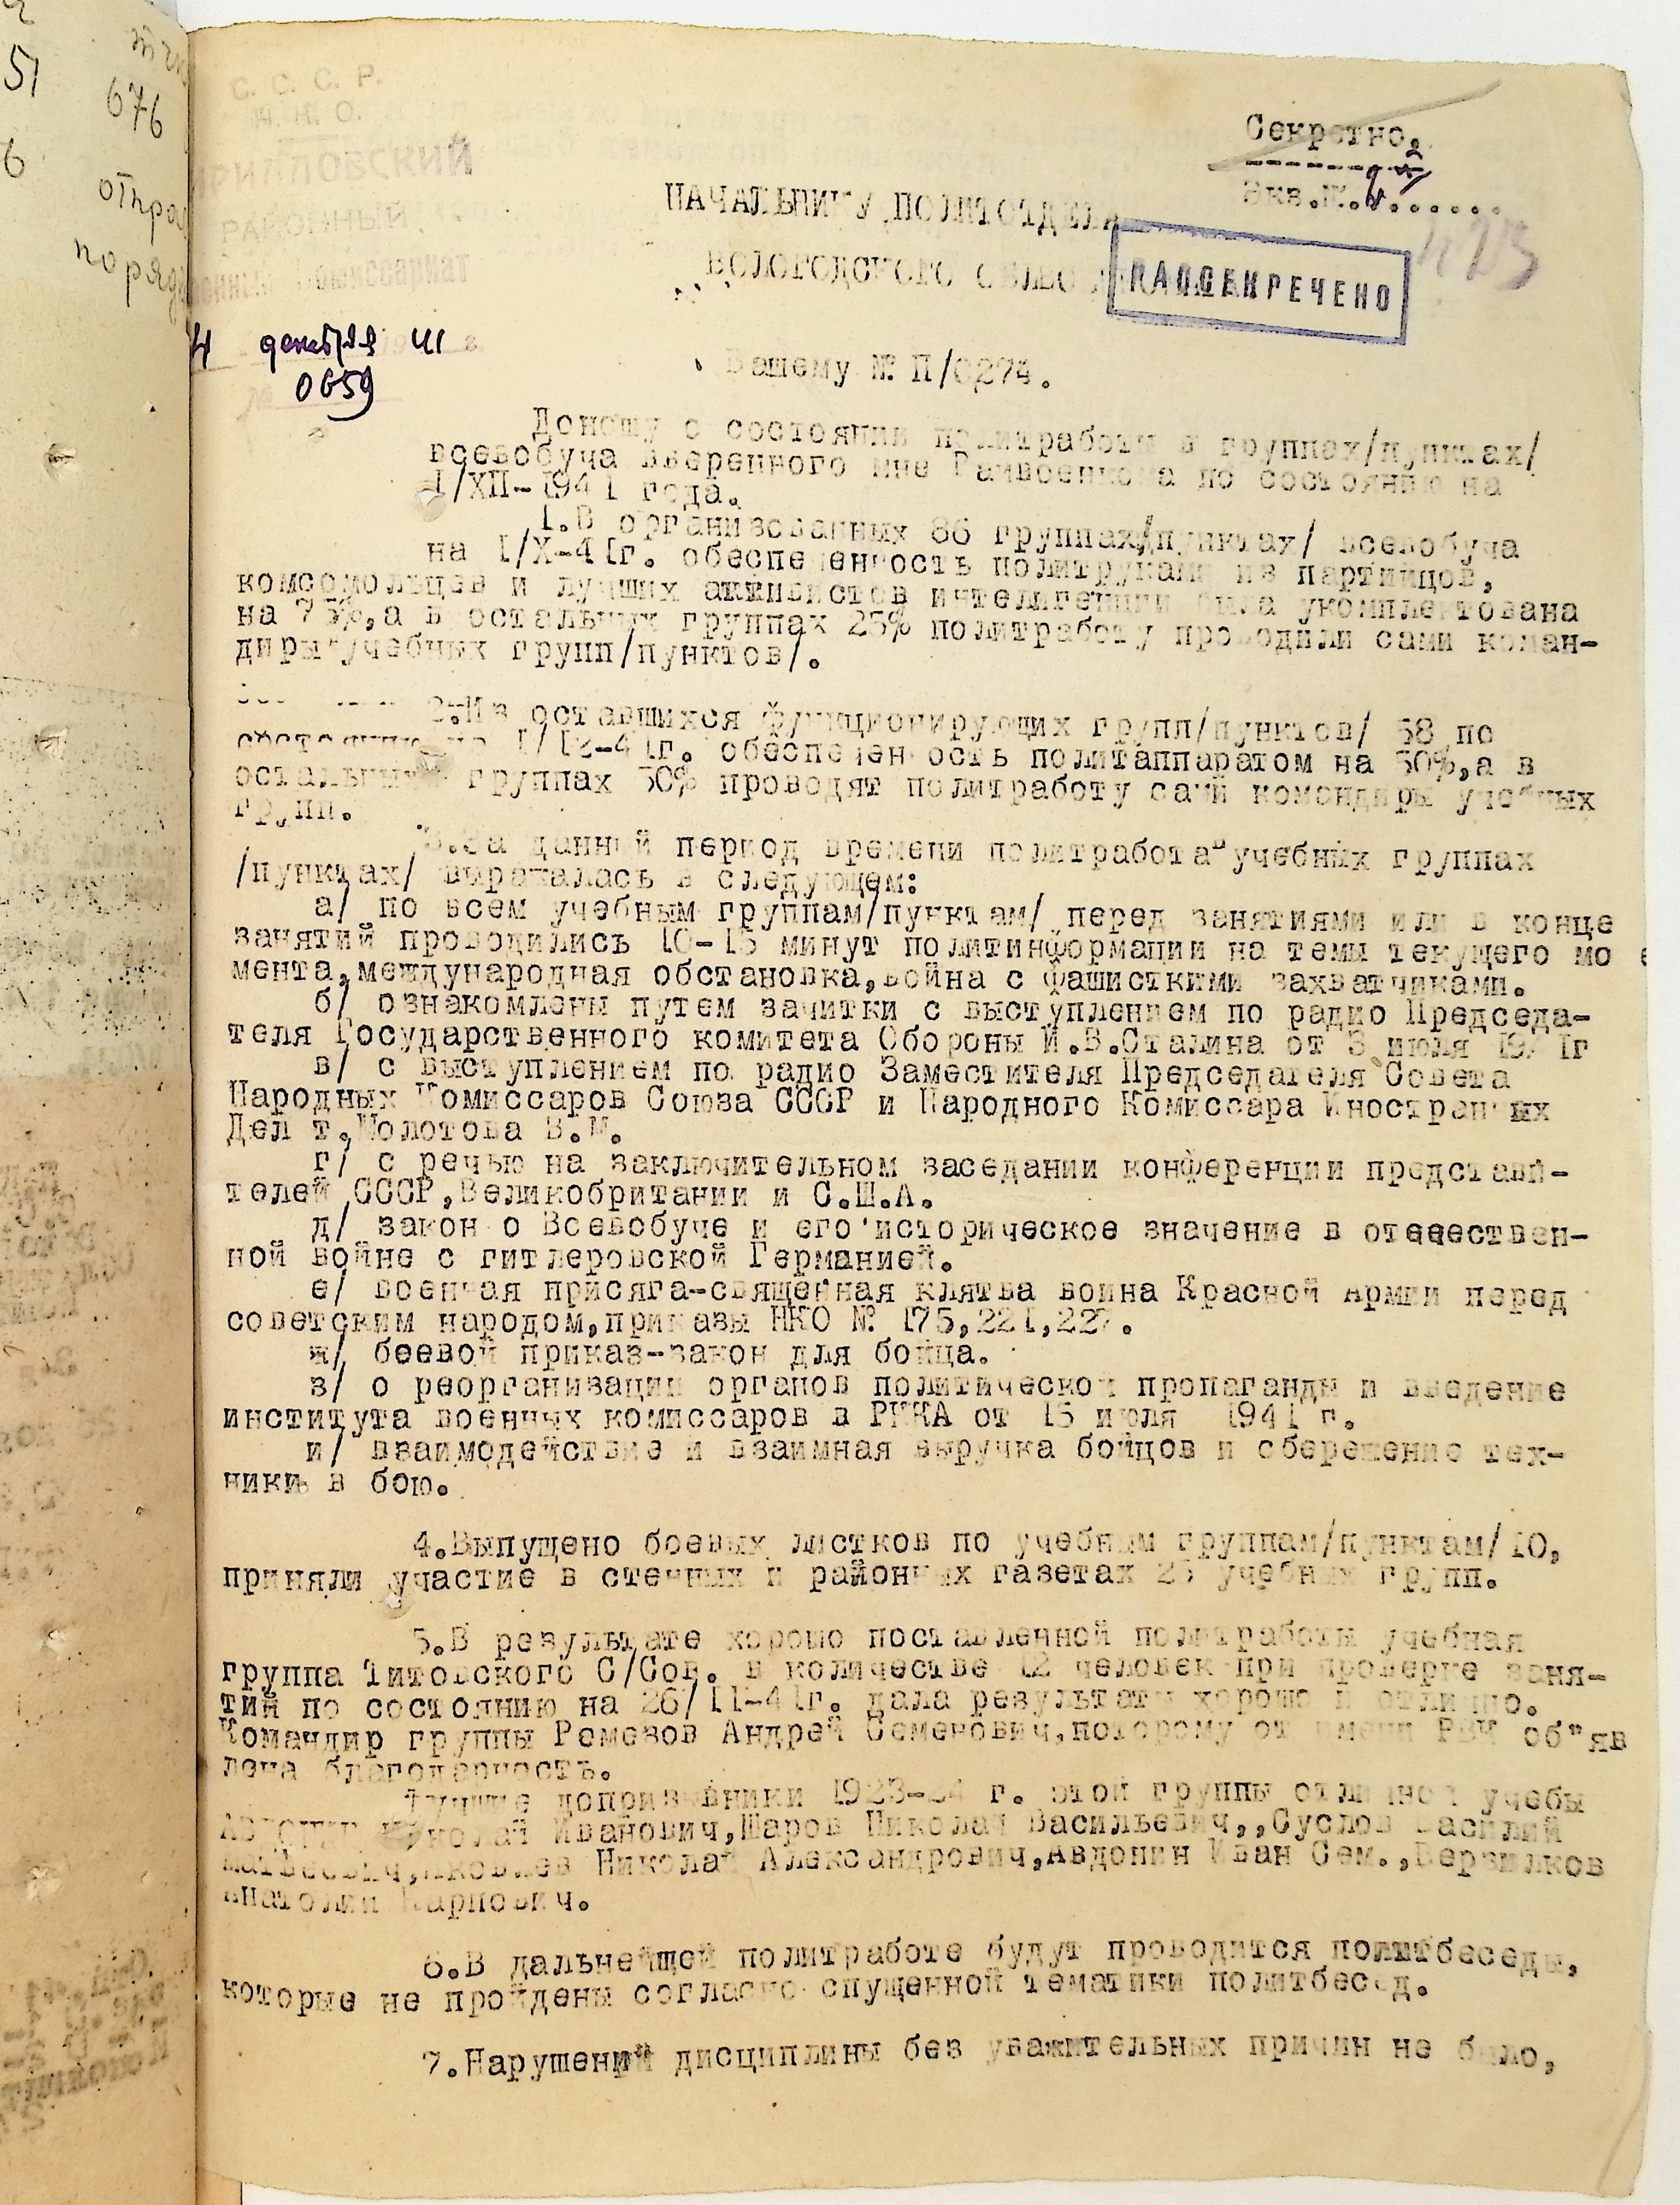 51
676
6
С. С. С. Р.
Н. К. О.
РАЙОННЫЙ
4 декабря 41 г.
№ 0659
Секретно.
Экз.№
НАЧАЛЬНИКУ ПОЛИТОТДЕЛА
ВОЛОГОДСКОГО
РАССЕКРЕЧЕНО
Вашему № II/0274.
Доношу о состоянии политработы в группах/пунктах/
всевобуча вверенного мне Райвоенкома по состоянию на
I/XII-1941 года.
I.В организованных 86 группах/пунктах/ всевобуча
на I/X-41г. обеспеченность политруками из партийцов,
комсомольцев и лучших активистов интелигенции была укомплектована
на 75%,а в остальных группах 25% политработу проводили сами коман-
диры учебных групп/пунктов/.
2.Из оставшихся функционирующих групп/пунктов/ 58 по
состоянию на I/12-41г. обеспеченность политаппаратом на 50%,а в
остальных группах 50% проводят политработу сами командиры учебных
групп.
3.За данный период времени политработа в учебных группах
/пунктах/ выражалась в следующем:
а/ по всем учебным группам/пунктам/ перед занятиями или в конце
занятий проводились 10-15 минут политинформации на темы текущего мо
мента,международная обстановка,война с фашисткими захватчиками.
б/ ознакомлены путем зачитки с выступлением по радио Председа-
теля Государственного комитета Обороны И.В.Сталина от 3 июля 1941г
в/ с выступлением по радио Заместителя Председателя Совета
Народных Комиссаров Союза СССР и Народного Комиссара Иностранных
Дел т.Молотова В.М.
г/ с речью на заключительном заседании конференции представи-
телей СССР,Великобритании и С.Ш.А.
д/ закон о Всевобуче и его историческое значение в отечествен-
ной войне с гитлеровской Германией.
е/ военная присяга-священная клятва воина Красной Армии перед
советским народом,приказы НКО № 175,221,227.
ж/ боевой приказ-закон для бойца.
з/ о реорганизации органов политической пропаганды и введение
института военных комиссаров в РККА от 15 июля 1941 г.
и/ взаимодействие и взаимная выручка бойцов и сбережение тех-
ники в бою.
4.Выпущено боевых листков по учебным группам/пунктам/10,
приняли участие в стенных и районных газетах 25 учебных групп.
5.В результате хорошо поставленной политработы учебная
группа Титовского С/Сов. в количестве 12 человек при проверке заня-
тий по состоянию на 26/11-41г. дала результаты хорошо и отлично.
Командир группы Ремезов Андрей Семенович,которому от имени РВК об"яв
лена благодарность.
Лучшие допризывники 1923-24 г. этой группы отличной учебы
Николай Иванович,Шаров Николай Васильевич,,Суслов Василий
Матвеевич,Яковлев Николай Александрович,Авдонин Иван Сем.,
Анатолий Карпович.
6.В дальнейшей политработе будут проводится политбеседы,
которые не пройдены согласно спущенной тематики политбесед.
7.Нарушений дисциплины без уважительных причин не было,